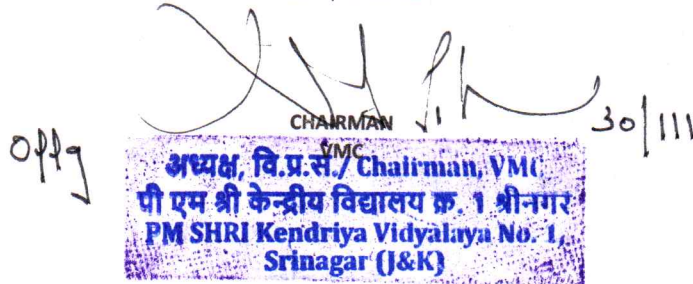 CHAIRMAN
Offg
30/111
VMC
अध्यक्ष, वि.प्र.स./ Chairman, VMC
पी एम श्री केन्द्रीय विद्यालय क्र. 1 श्रीनगर
PM SHRI Kendriya Vidyalaya No. 1,
Srinagar (J&K)